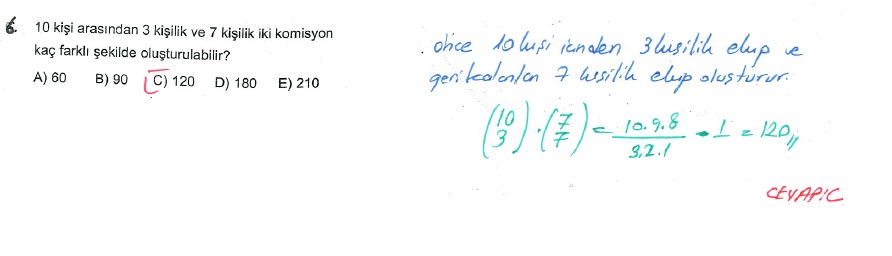 6. 10 kişi arasından 3 kişilik ve 7 kişilik iki komisyon
kaç farklı şekilde oluşturulabilir?
A) 60 B) 90 C) 120 D) 180 E) 210
önce 10 kişi içinden 3 kişilik ekip ve
geri kalanlan 7 kişilik ekip oluşturur.
(10 3) . (7 7) = 10.9.8 / 3.2.1 . 1 = 120,,
CEVAP:C